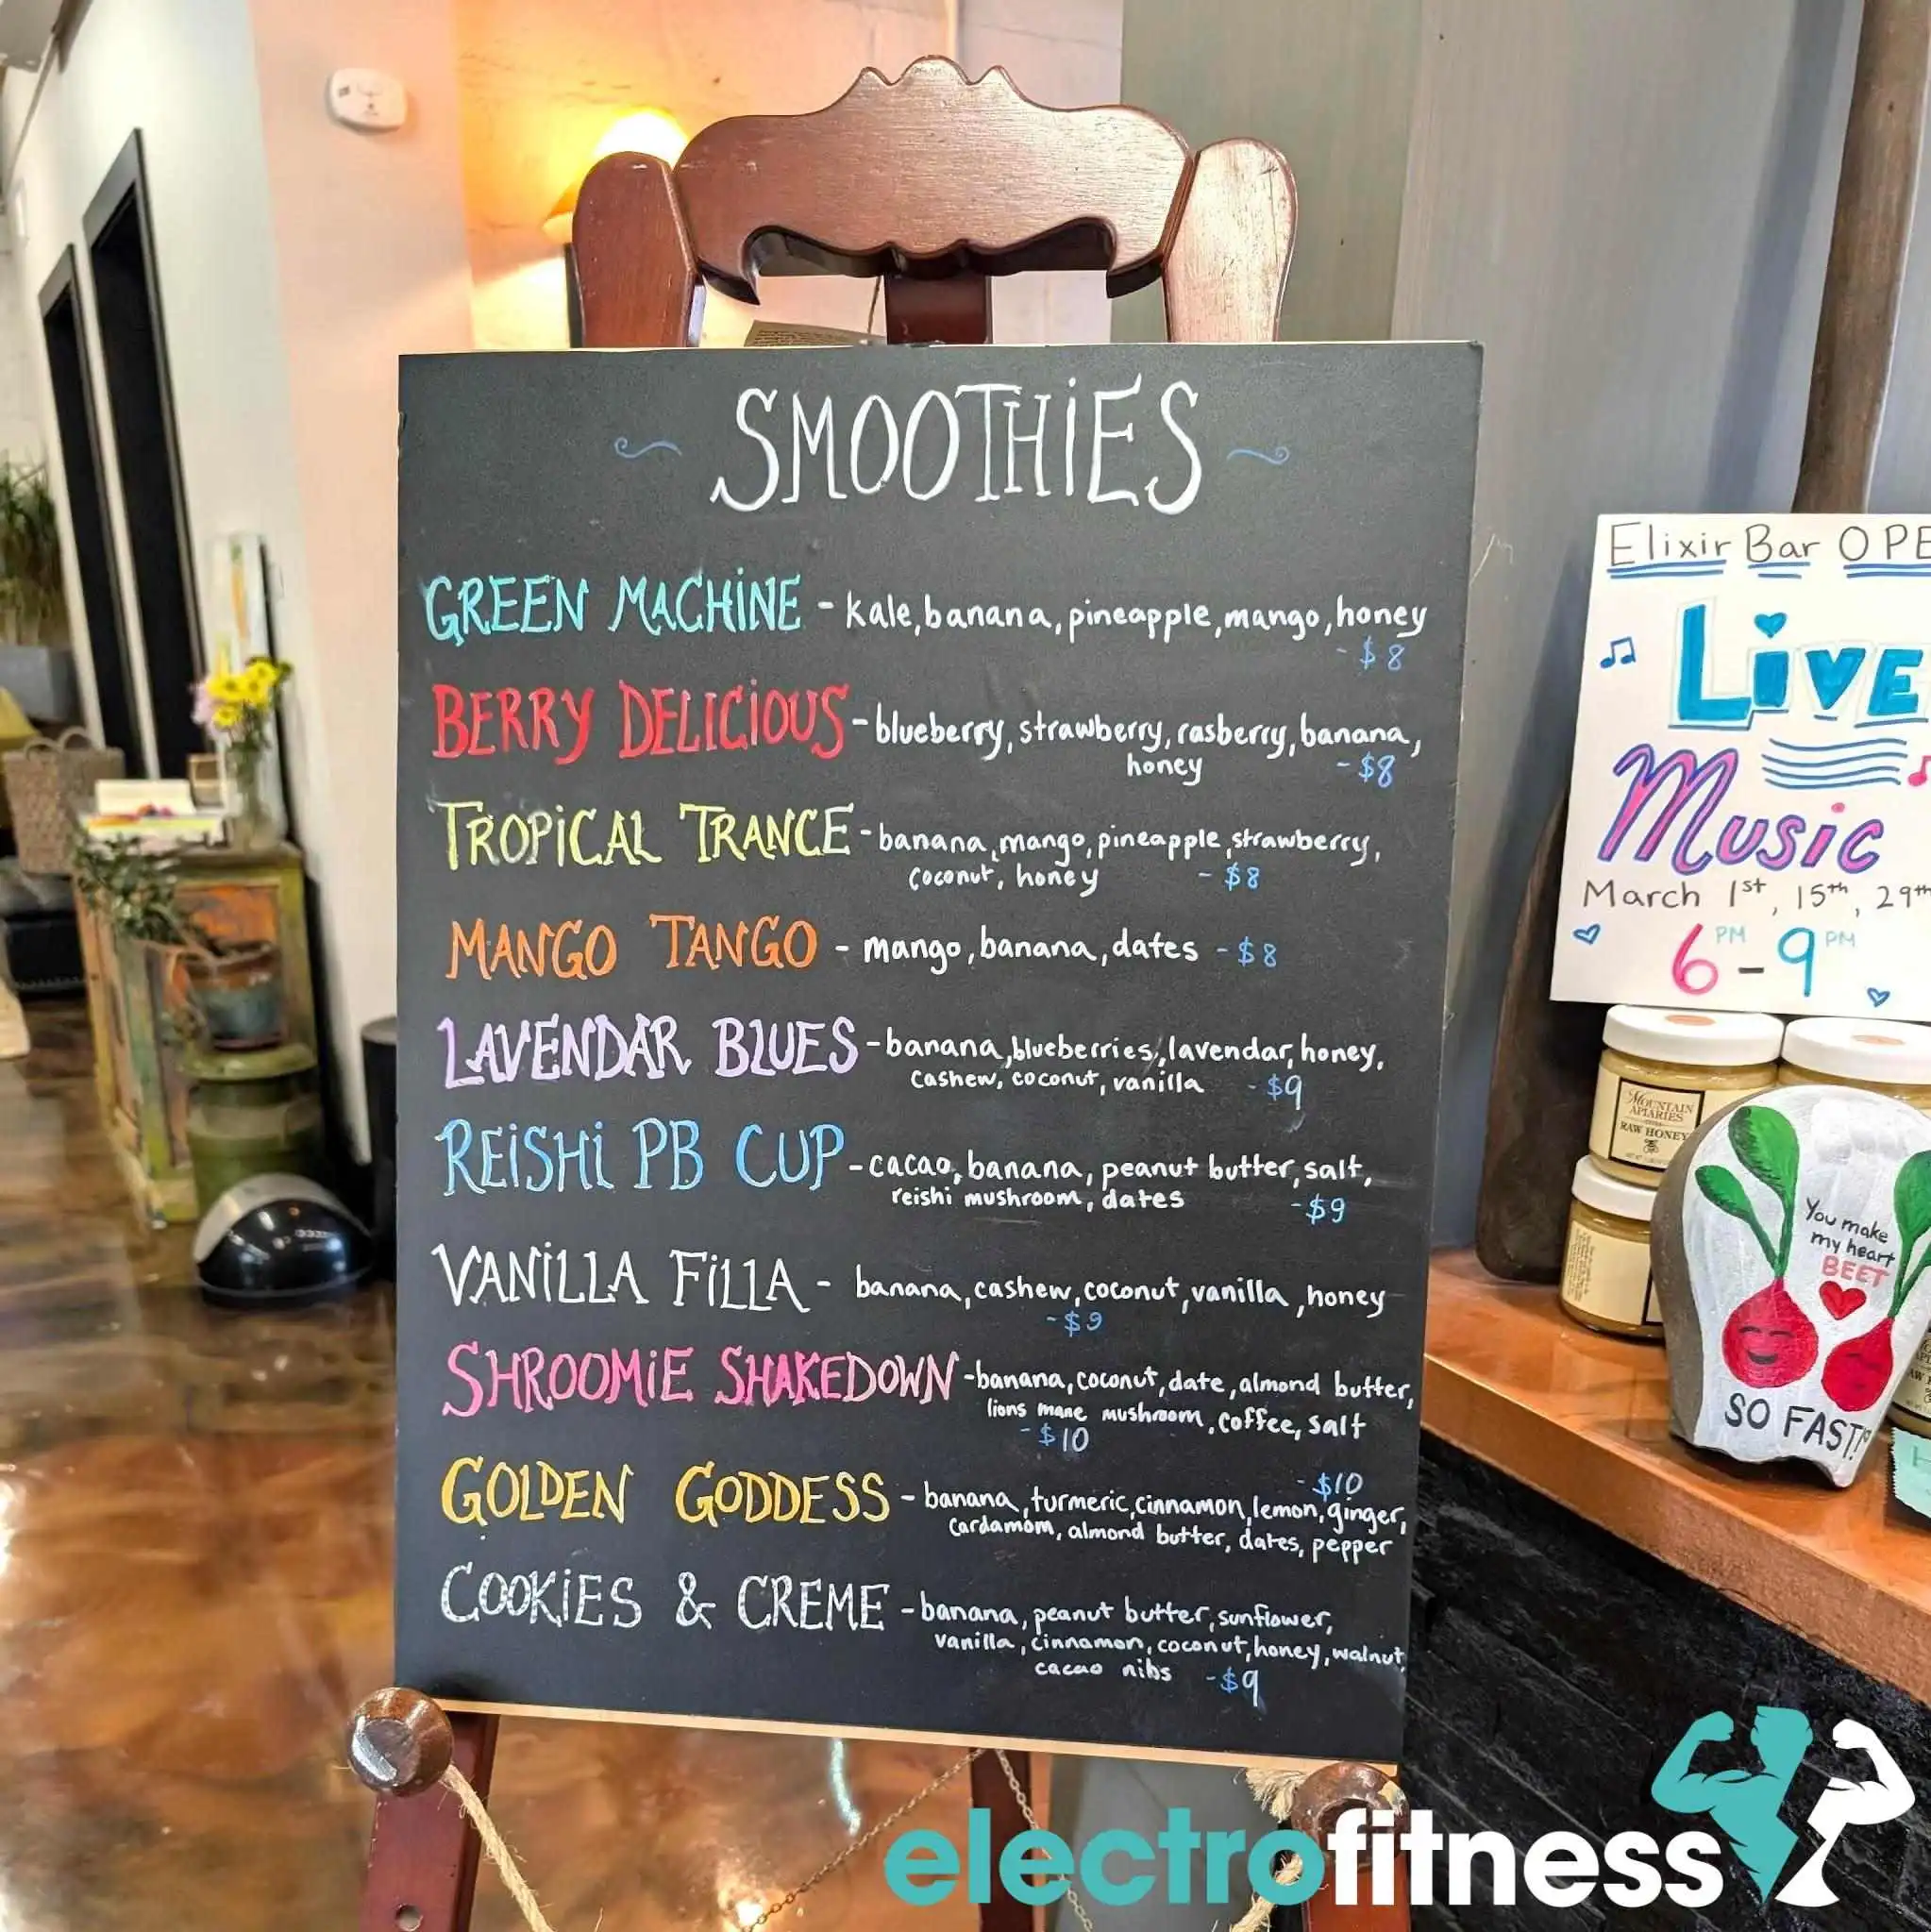 SMOOTHiES
GREEN MACHiNE - kale, banana, pineapple, mango, honey
- $8
BERRY DELICiOUS - blueberry, strawberry, rasberry, banana,
honey - $8
TROPiCAL TRANCE - banana, mango, pineapple, strawberry,
coconut, honey - $8
MANGO TANGO - mango, banana, dates - $8
LAVENDAR BLUES - banana, blueberries, lavendar, honey,
cashew, coconut, vanilla - $9
REiSHi PB CUP - cacao, banana, peanut butter, salt,
reishi mushroom, dates - $9
VANiLLA FiLLA - banana, cashew, coconut, vanilla, honey
- $9
SHROOMiE SHAKEDOWN - banana, coconut, date, almond butter,
lions mane mushroom, coffee, salt
- $10
- $10
GOLDEN GODDESS - banana, turmeric, cinnamon, lemon, ginger,
cardamom, almond butter, dates, pepper
COOKiES & CREME - banana, peanut butter, sunflower,
vanilla, cinnamon, coconut, honey, walnut,
cacao nibs - $9
Elixir Bar
LiVE
Music
March 1st, 15th, 29th
6 PM - 9 PM
MOUNTAIN
APIARIES
RAW HONEY
You make
my heart
BEET
SO FAST!
electrofitness